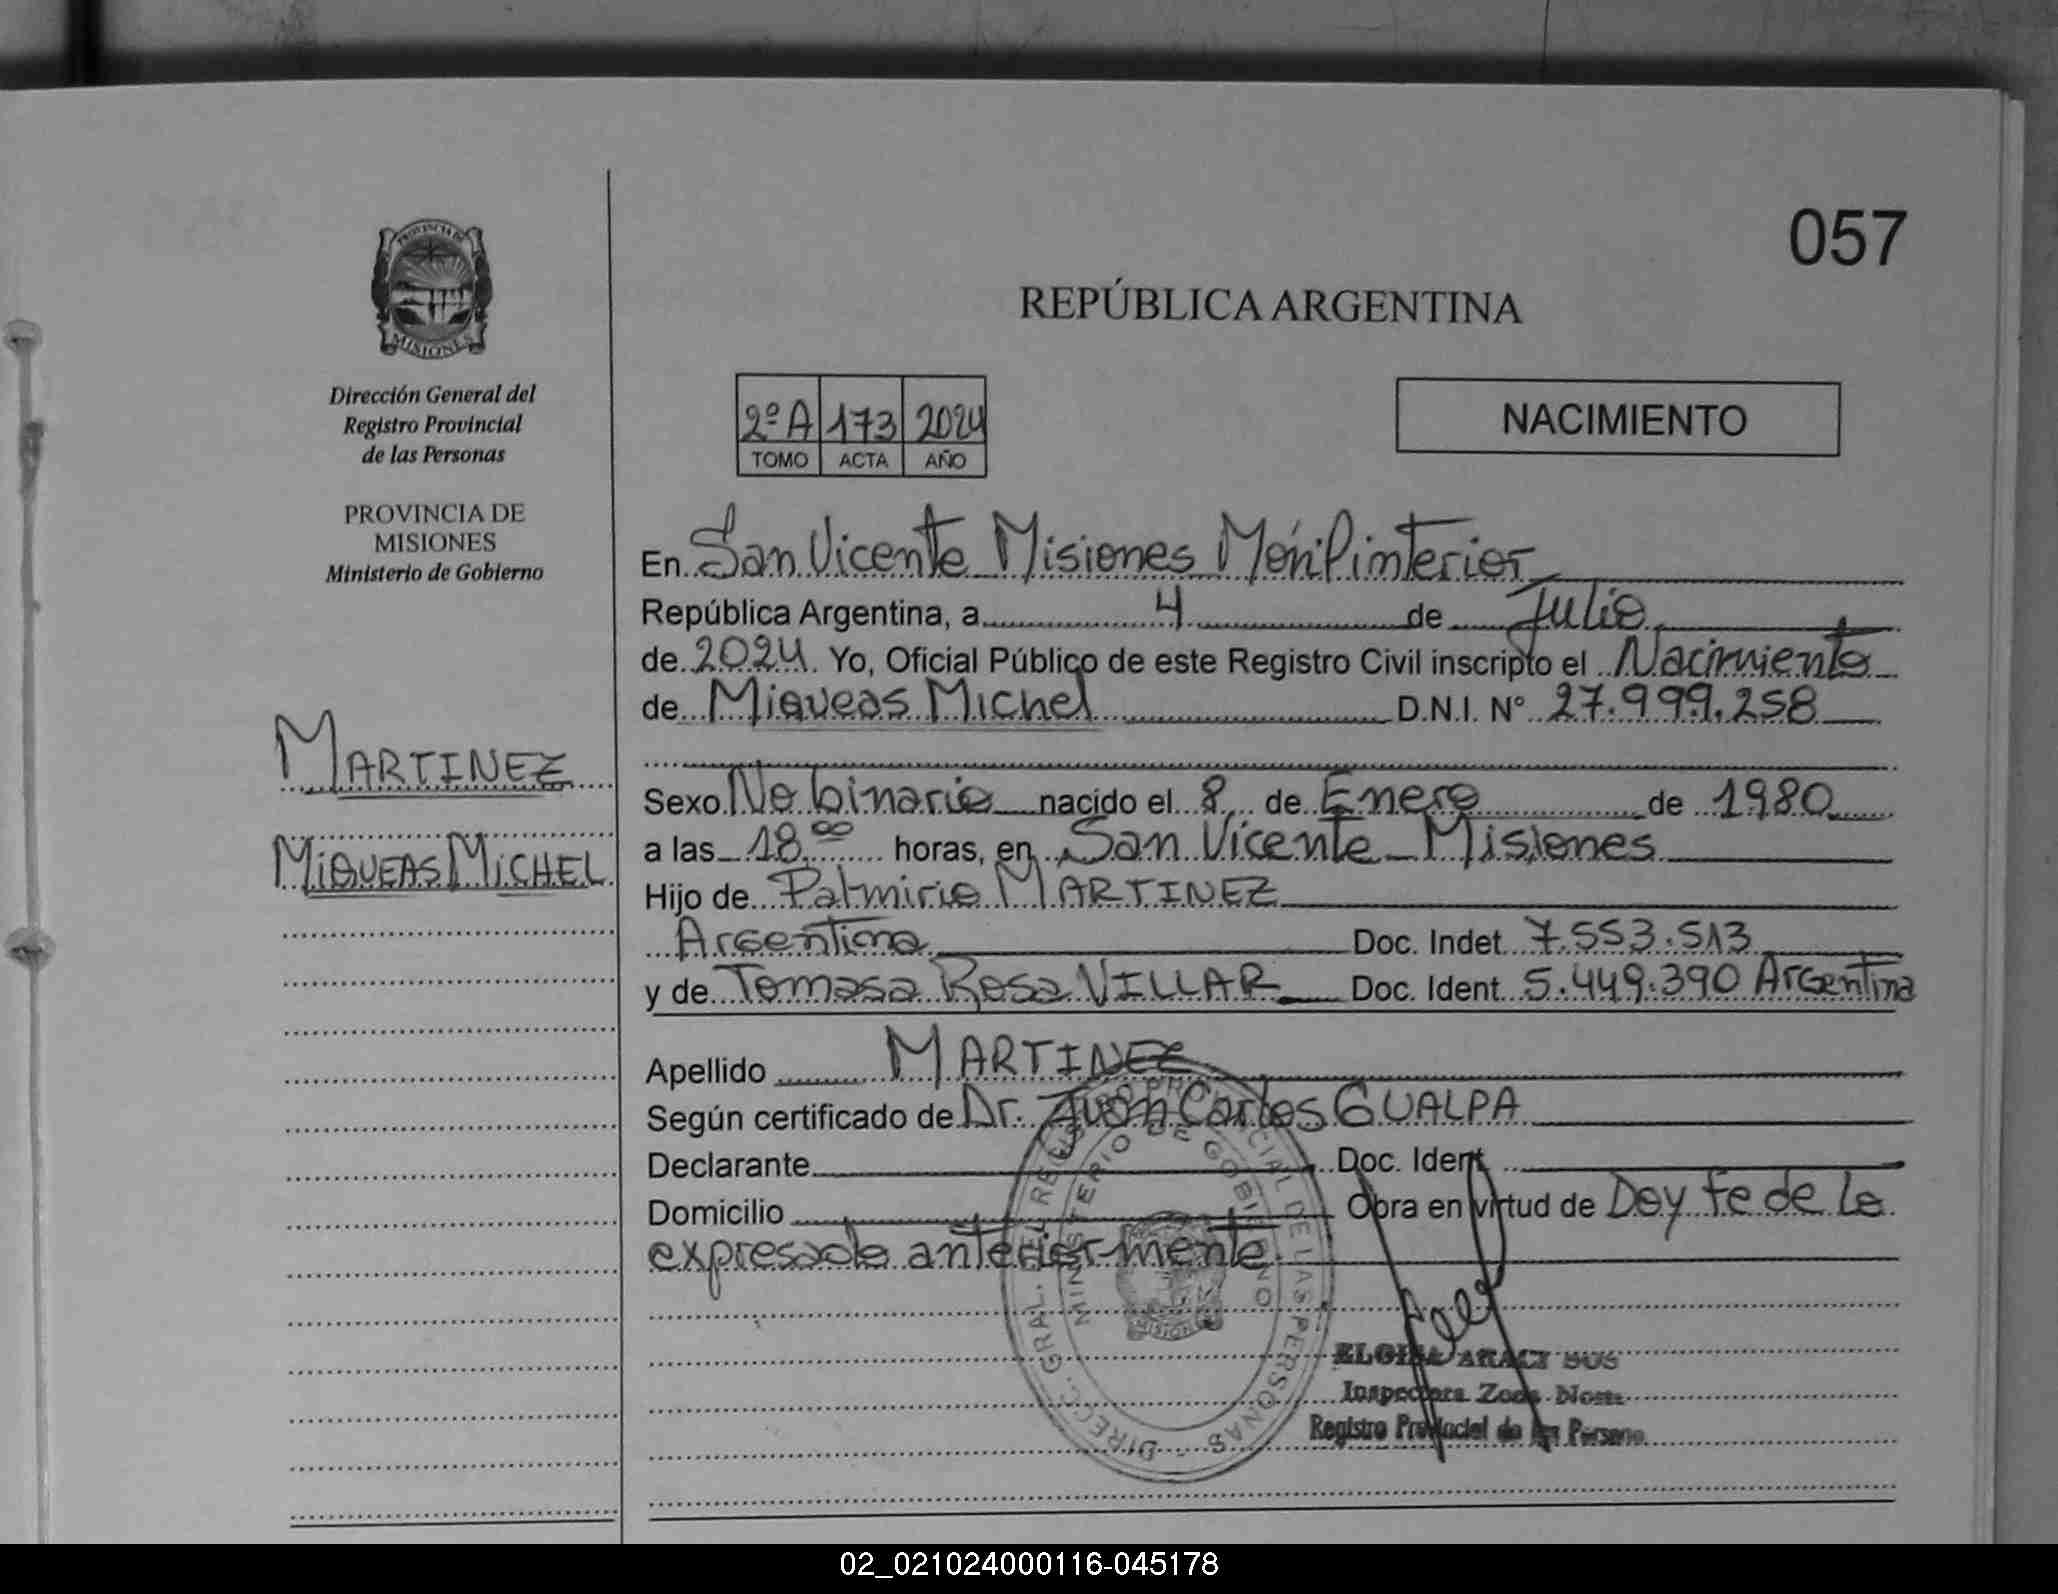 057
PROVINCIA DE
MISIONES
REPÚBLICA ARGENTINA
Dirección General del
Registro Provincial
de las Personas
PROVINCIA DE
MISIONES
Ministerio de Gobierno
2º A 173 2024
TOMO ACTA AÑO
NACIMIENTO
MARTINEZ
MIQUEAS MICHEL
En San Vicente Misiones
República Argentina, a 4 de Julio
de 2024 Yo, Oficial Público de este Registro Civil inscripto el Nacimiento
de Miqueas Michel D.N.I. N° 27.999.258
Sexo No binario nacido el 8 de Enero de 1980
a las 18,00 horas, en San Vicente Misiones
Hijo de Palmirio MARTINEZ
Argentina Doc. Indet 7.553.513
y de Tomasa Rosa VILLAR Doc. Ident 5.449.390 Argentina
Apellido MARTINEZ
Según certificado de Dr. Juan Carlos GUALPA
Declarante Doc. Ident
Domicilio Obra en virtud de Doy fe de lo
expresado anteriormente
DIREC. GRAL. DEL REGISTRO PROVINCIAL DE LAS PERSONAS
MINISTERIO DE GOBIERNO
MISIONES
Inspectora Zona
Registro Provincial de las Persona
02_021024000116-045178